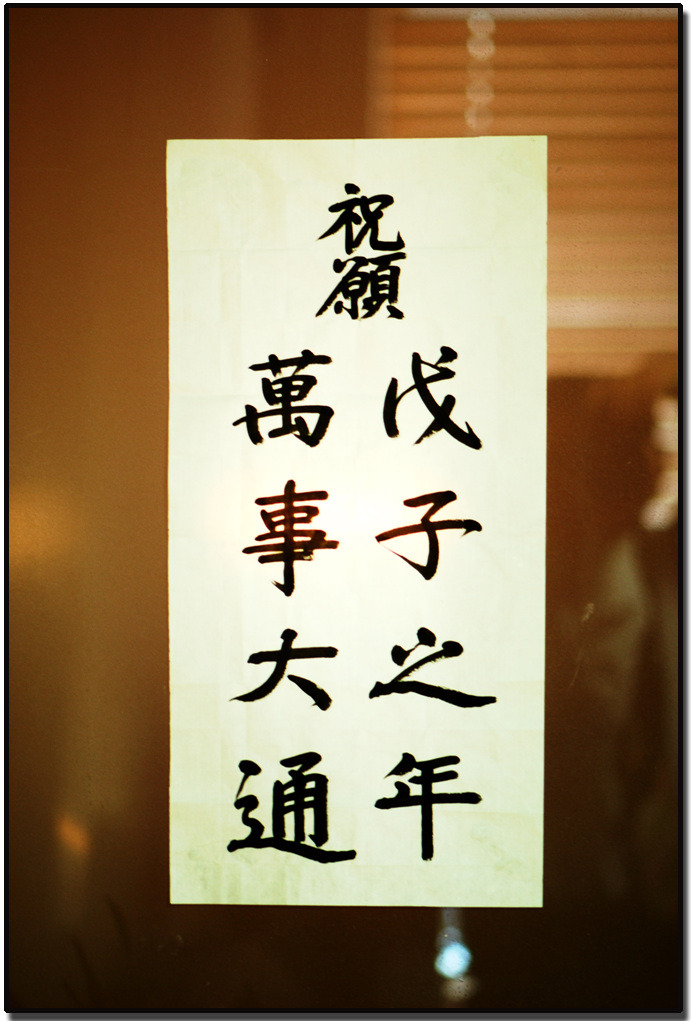 祝願
戊子之年
萬事大通